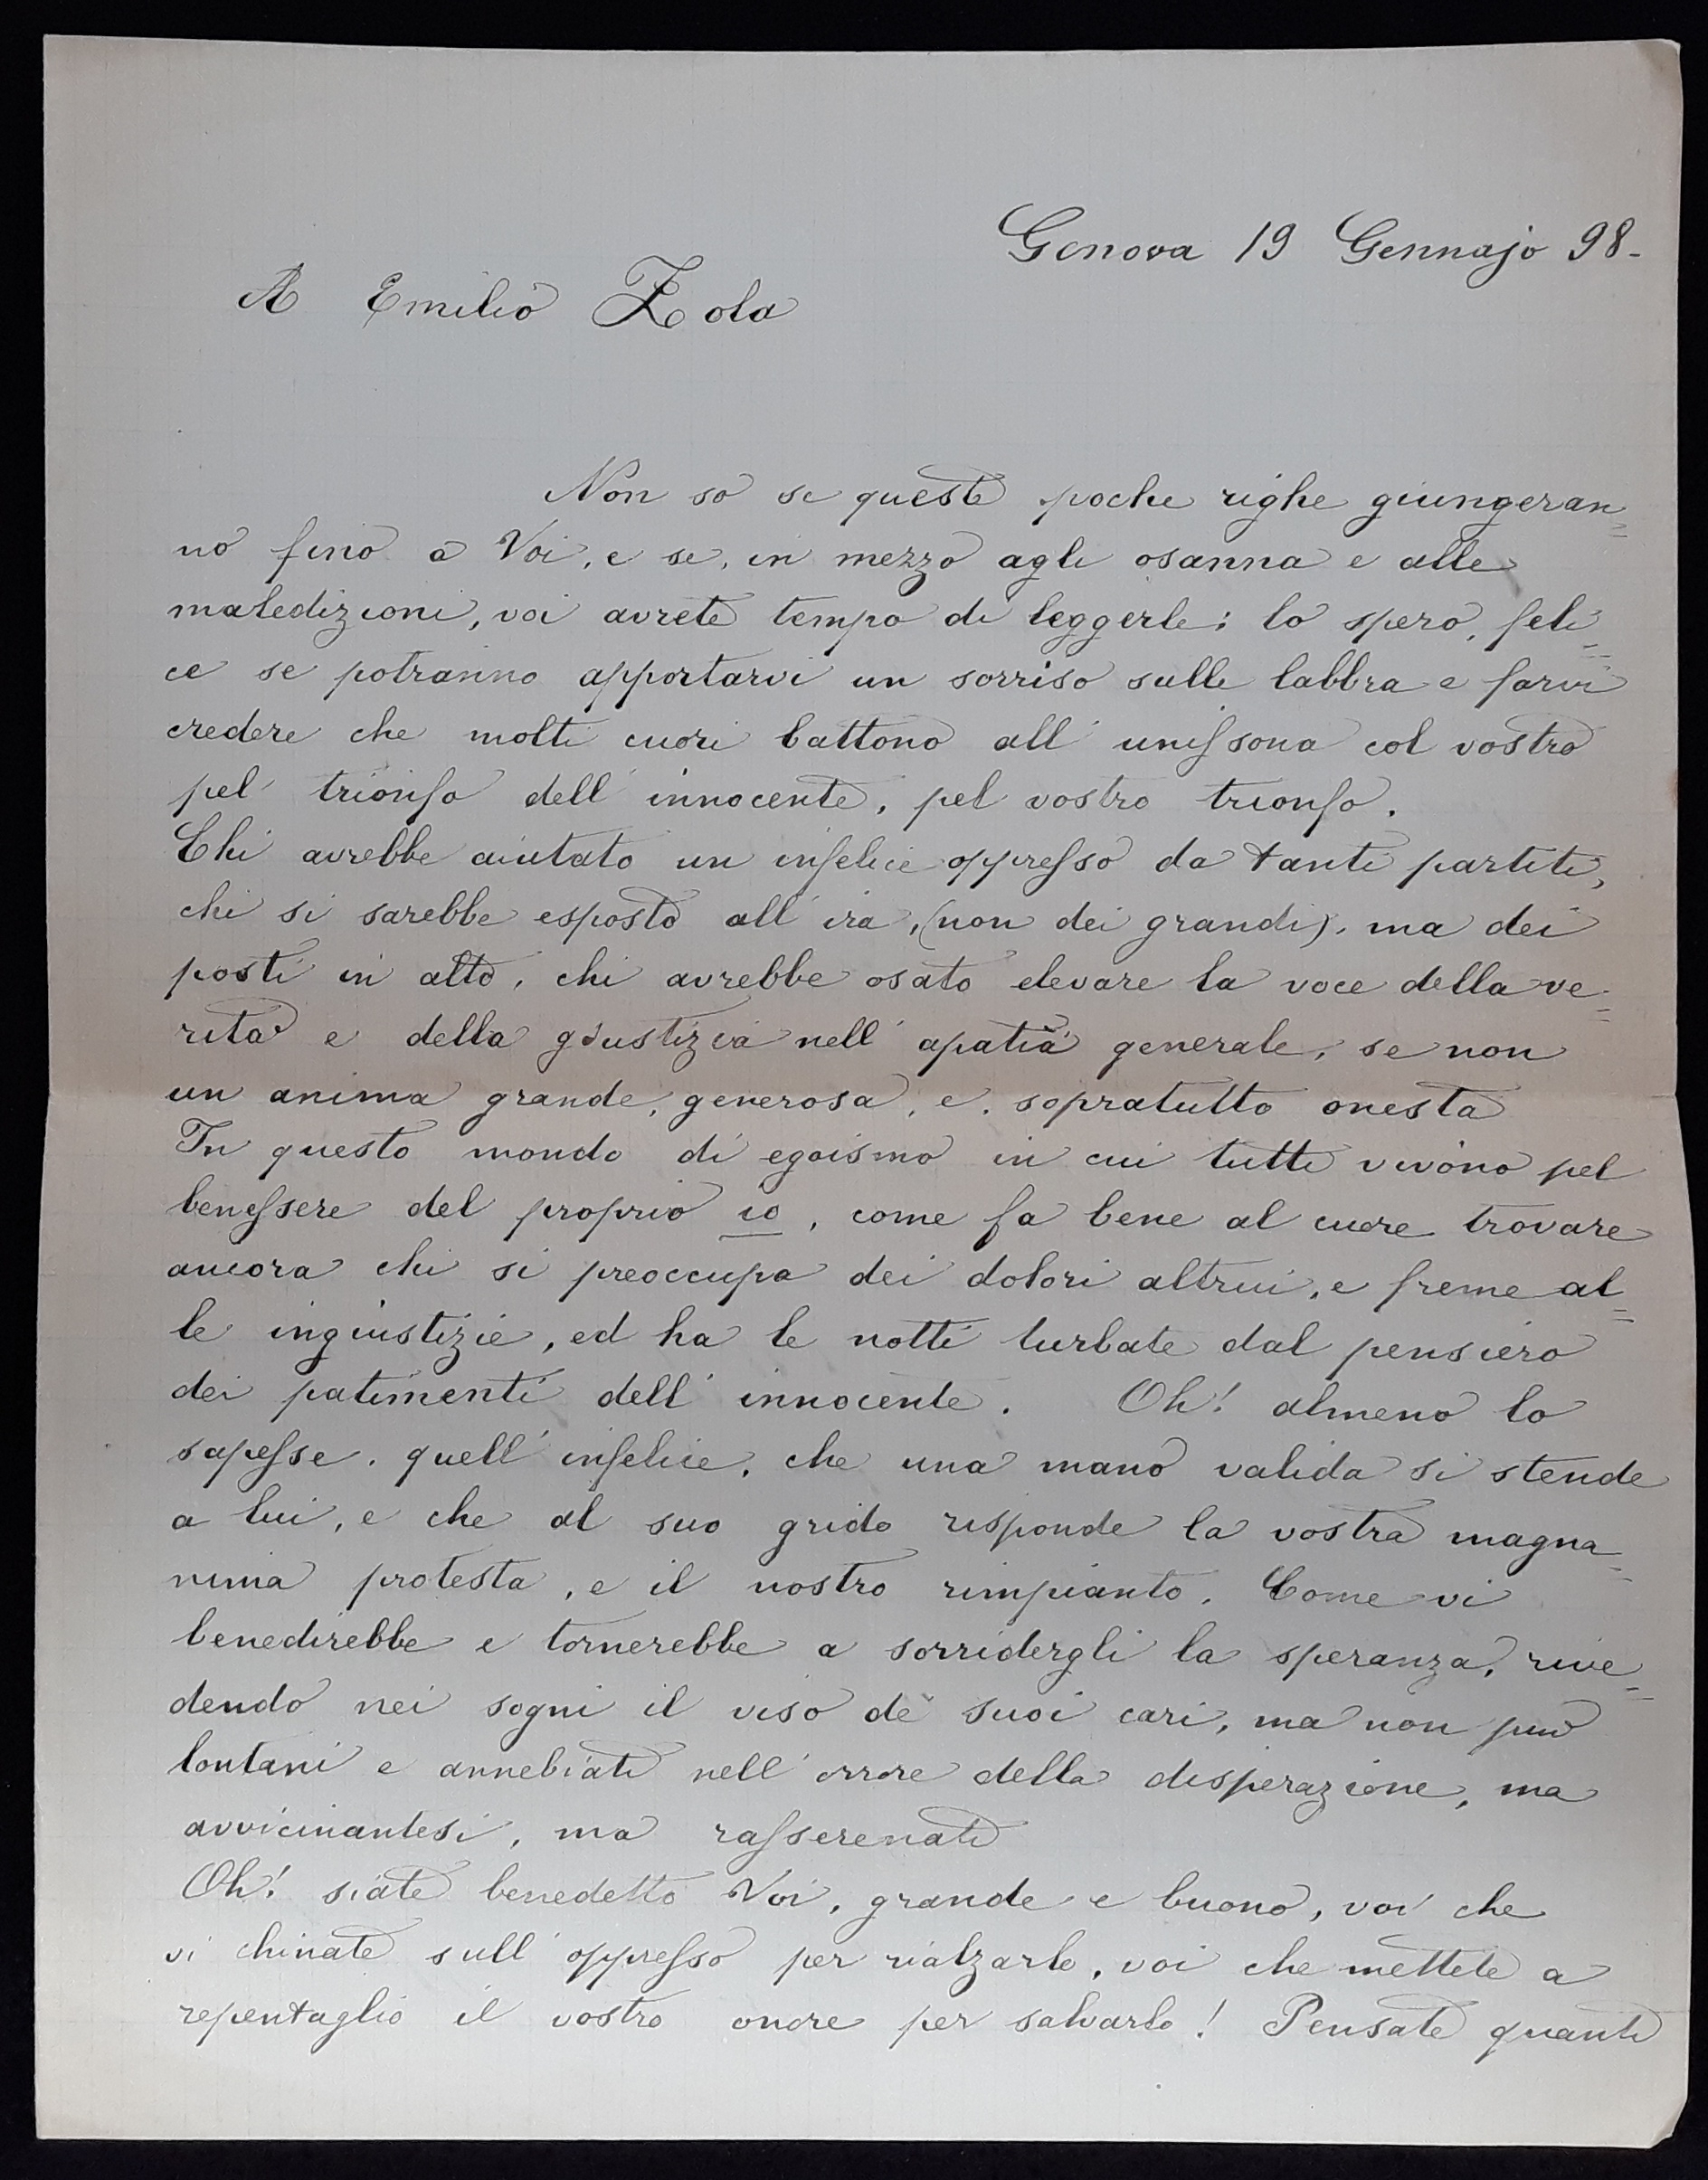 Genova 19 Gennajo 98-
A Emilio Zola
Non so se queste poche righe giungeran=
no fino a Voi, e se, in mezzo agli osanna e alle
maledizioni, voi avrete tempo di leggerle; lo spero, feli=
ce se potranno apportarvi un sorriso sulle labbra e farvi
credere che molti cuori battono all' unissona col vostro
pel trionfo dell' innocente, pel vostro trionfo.
Chi avrebbe aiutato un infelice oppresso da tanti partiti,
chi si sarebbe esposto all' ira, (non dei grandi), ma dei
posti in alto, chi avrebbe osato elevare la voce della ve=
rità e della giustizia nell' apatia generale, se non
un anima grande, generosa, e, sopratutto onesta
In questo mondo di egoismo in cui tutti vivono pel
benessere del proprio io, come fa bene al cuore trovare
ancora chi si preoccupa dei dolori altrui, e freme al=
le ingiustizie, ed ha le notti turbate dal pensiero
dei patimenti dell' innocente. Oh! almeno lo
sapesse, quell' infelice, che una mano valida si stende
a lui, e che al suo grido risponde la vostra magna=
nima protesta, e il nostro rimpianto. Come vi
benedirebbe e tornerebbe a sorridergli la speranza, rive=
dendo nei sogni il viso de' suoi cari, ma non più
lontani e annebiati nell' orrore della disperazione, ma
avvicinantesi, ma rasserenati
Oh! siate benedetto Voi, grande e buono, voi che
vi chinate sull' oppresso per rialzarlo, voi che mettete a
repentaglio il vostro onore per salvarlo! Pensate quanti